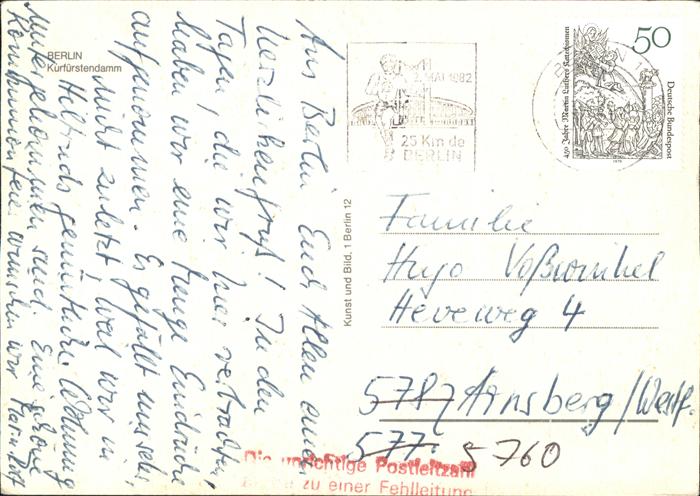 BERLIN
Kurfürstendamm
Aus Berlin Euch Allen einen
herzlichen Gruß! In den
Tagen, die wir hier verbrachten,
haben wir eine Menge Eindrücke
aufgenommen. Es gefällt uns sehr,
nicht zuletzt weil wir in
Hiltruds gemütliche Wohnung
untergekommen sind. Eine schöne
Kommunionfeier wünschen wir
Kunst und Bild, 1 Berlin 12
2. MAI 1982
25 Km de
BERLIN
50
Deutsche Bundespost
450 Jahre Martin Luthers Katechismen
1979
Familie
Hugo Voßwinkel
Heveweg 4
5787 Arnsberg/Westf.
577 5760
Die unrichtige Postleitzahl
zu einer Fehlleitung